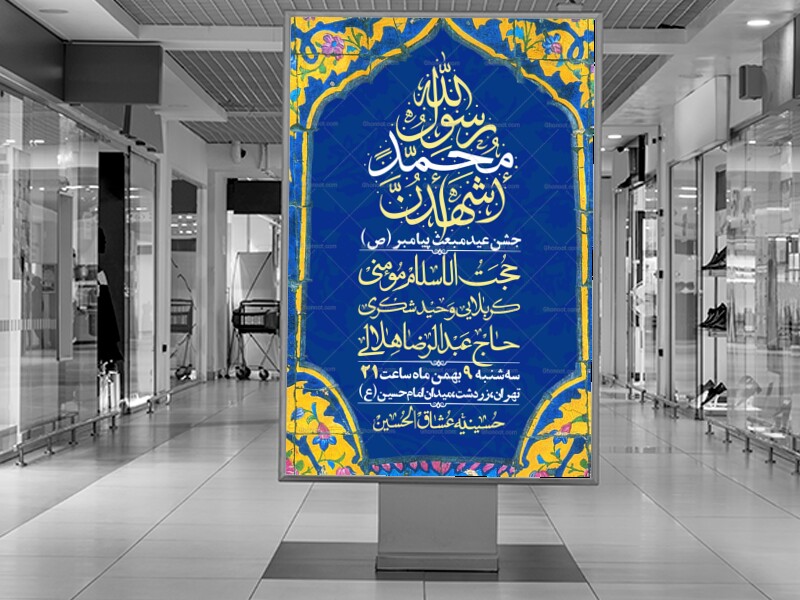 اشهد ان
محمد
رسول الله
جشن عید مبعث پیامبر (ص)
حجت الاسلام مومنی
کربلایی وحید شکری
حاج عبدالرضا هلالی
سه شنبه ۹ بهمن ماه ساعت ۲۱
تهران،زردشت،میدان امام حسین (ع)
حسینیه عشاق الحسین